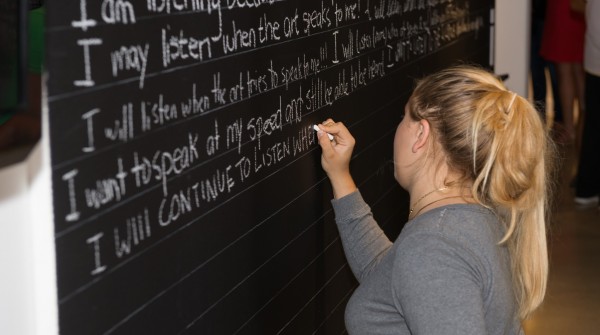 I am listening because the art speaks to me! I will
I may listen when the art speaks to me! I will listen
I will listen when the art tries to speak to me!!! I will listen
I want to speak at my speed and still be able to be heard
I WILL CONTINUE TO LISTEN WHE